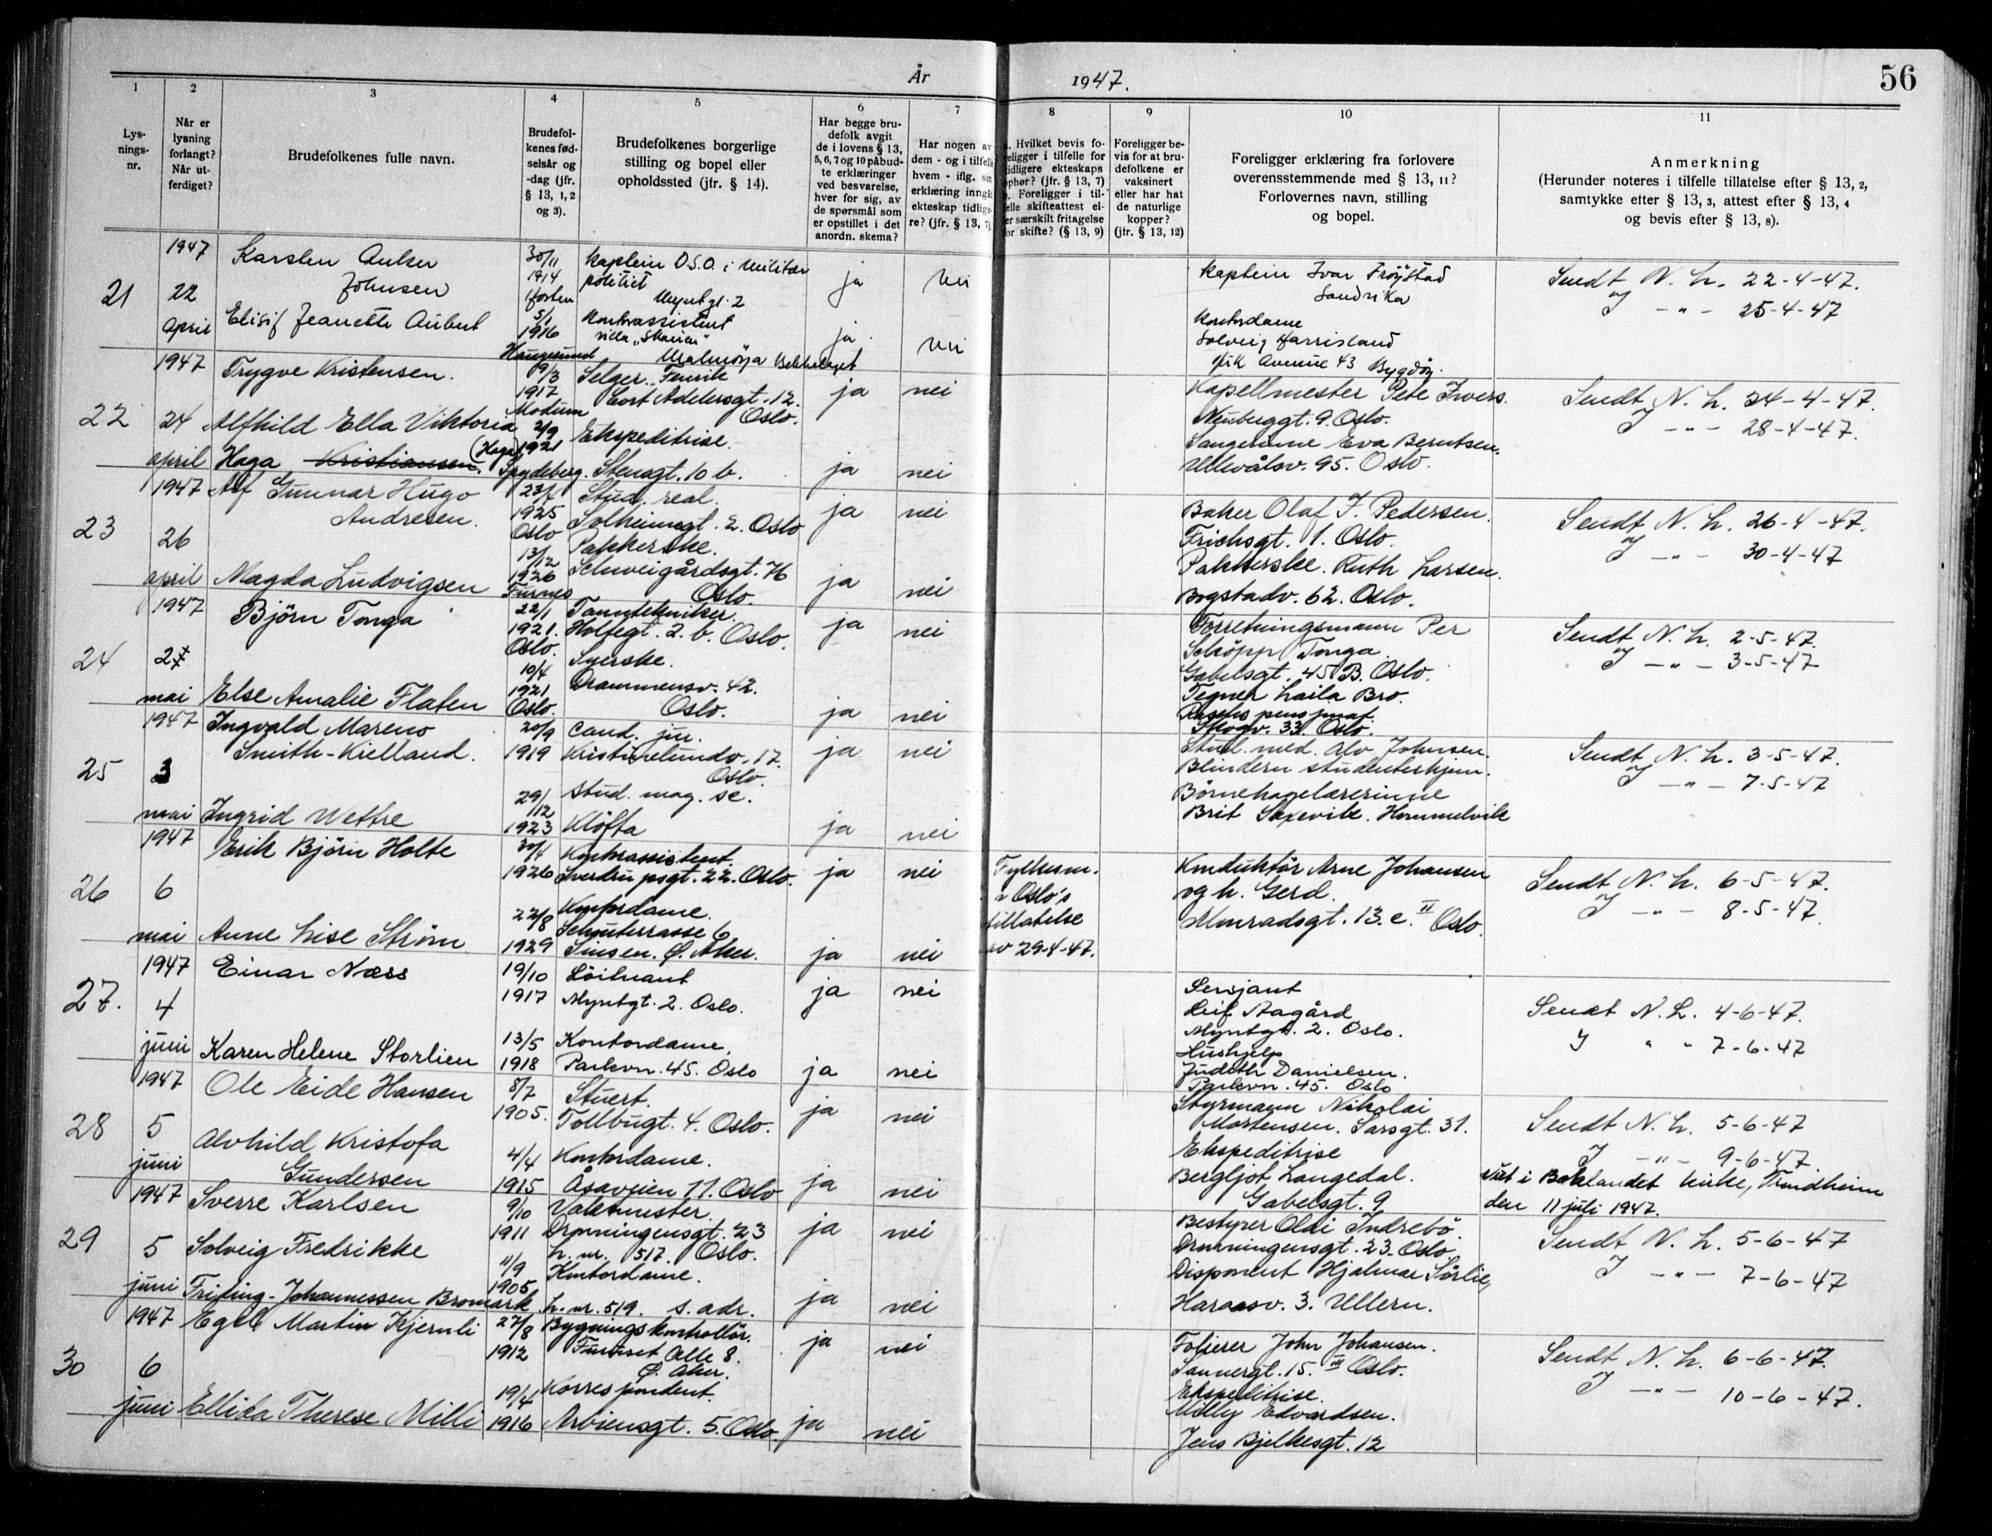 År 1947.
56
1 2 3 4 5 6 7 8 9 10 11
Lys-
nings-
nr.
Når er
lysning
forlangt?
Når ut-
ferdiget?
Brudefolkenes fulle navn.
Brudefol-
kenes fød-
selsår og
-dag (jfr.
§ 13, 1, 2
og 3).
Brudefolkenes borgerlige
stilling og bopel eller
opholdssted (jfr. § 14).
Har begge bru-
defolk avgit
de i lovens § 13,
5, 6, 7 og 10 påbud-
te erklæringer
ved besvarelse,
hver for sig, av
de spørsmål som
er opstillet i det
anordn. skema?
Har nogen av
dem - og i tilfelle
hvem - iflg. sin
erklæring inngåt
ekteskap tidlige-
re? (jfr. § 13, 7)
a. Hvilket bevis fo-
religger i tilfelle for
tidligere ekteskaps
ophør? (jfr. § 13, 7)
b. Foreligger i til-
felle skifteattest el-
ler særskilt fritagelse
for skifte? (§ 13, 9)
Foreligger be-
vis for at bru-
defolkene er
vaksinert
eller har hat
de naturlige
kopper?
(jfr. § 13, 12)
Foreligger erklæring fra forlovere
overensstemmende med § 13, 11?
Forlovernes navn, stilling
og bopel.
Anmerkning
(Herunder noteres i tilfelle tillatelse efter § 13, 2,
samtykke efter § 13, 3, attest efter § 13, 4
og bevis efter § 13, 8).
21
1947
22
april
Karsten Anker
Johnsen
Elisif Jeanette Aubert
30/11
1914
Horten
5/1
1916
Haugesund
Kaptein D.S.O. i Militær
politiet
Myntgt. 2
Kontorassistent
villa "Skauen"
Malmøya Bekkelaget
ja nei
ja nei
Kaptein Ivar Frøystad
Sandvika
Kontordame
Solveig Harrisland
Fr̲k Avenue 43 Bygdøy.
Sendt N. L. 22-4-47.
og J — " — 25-4-47
22
1947
24
april
Trygve Kristensen.
Alfhild Ella Viktoria
Haga Kristiansen. (Haga)
19/3
1917
Modum
2/9
1921
Spydeberg.
Selger. Fenrik
Cort Adelersgt. 12.
Oslo.
Ekspeditrise.
Stensgt. 10 b.
ja nei
ja nei
Kapellmester Pete Ivers.
Neubeggt. 9. Oslo.
Sangerinne Eva Berntsen.
Ullevålsv. 95. Oslo.
Sendt N. L. 24-4-47.
J — " — 28-4-47.
23
1947
26
april
Alf Gunnar Hugo
Andresen.
Magda Ludvigsen
23/
1925
Oslo
13/12
1926
Furnes
Stud. real.
Solheimsgt. 2. Oslo
Pakkerske.
Schweigårdsgt. 76
Oslo.
ja nei
ja nei
Baker Olaf J. Pedersen.
Frichsgt. 1. Oslo.
Pakkerske. Ruth Larsen.
Bogstadv. 62. Oslo.
Sendt N. L. 26-4-47.
og J — " — 30-4-47
24
1947
2
mai
Bjørn Tonga
Else Amalie Flaten
22/1
1921.
Oslo.
10/4
1921
Oslo.
Tanntekniker.
Holfsgt. 2. b. Oslo.
Syerske.
Drammensv. 42.
Oslo.
ja nei
ja nei
Forretningsmann Per
Schöpp Tonga.
Gabelsgt. 45 B. Oslo.
Tegner Laila Bro.
Raschs pensjonat.
Skogv. 33. Oslo.
Sendt N. L. 2-5-47.
J — " — 3-5-47
25
1947
3
mai
Ingvald Mareno
Smith-Kielland.
Ingrid Wettre
20/9
1919
29/12
1923
Cand. jur.
Kristinelundv. 17.
Oslo.
Stud. mag. sc.
Kløfta
ja nei
ja nei
Stud. med. Alv Johnsen.
Blindern studenterhjem.
Børnehagelærerinne
Brit Saxevik. Hommelvik
Sendt N. L. 3-5-47.
J — " — 7-5-47
26
1947
6
mai
Erik Bjørn Holte
Anne Lise Strøm
30/4
1926
22/8
1929
Kontorassistent.
Sverdrupsgt. 22. Oslo.
Kontordame.
Schouterrasse 6
Sinsen. Ø. Aker.
ja nei
ja nei
Fylkesm.
i Oslo's
tillatelse
av 29-4-47.
Konduktør Arne Johansen
og h. Gerd.
Konradsgt. 13. c. II Oslo.
Sendt N. L. 6-5-47.
J — " — 8-5-47.
27.
1947
4
juni
Einar Næss
Karen Helene Storlien
19/10
1917
13/5
1918
Løitnant
Myntgt. 2. Oslo.
Kontordame.
Parkvn. 45. Oslo
ja nei
ja nei
Sersjant
Leif Aagård
Myntgt. 2. Oslo.
Hushjelp
Judith Danielsen.
Parkvn. 45. Oslo
Sendt N. L. 4-6-47.
J " " 7-6-47
28
1947
5
juni
Ole Eide Hansen
Alvhild Kristofa
Gundersen
8/7
1905.
4/4
1915
Stuert.
Tollbugt. 4. Oslo.
Kontordame.
Åsaveien 11. Oslo
ja nei
ja nei
Styrmann Nikolai
Mortensen. Sarsgt. 31.
Ekspeditrise
Bergljot Langedal.
Gabelsgt. 9
Sendt N. L. 5-6-47
J — " — 9-6-47.
Viet i Baklandet kirke, Trondheim
den 11 juli 1947.
29
1947
5
juni
Sverre Karlsen
Solveig Fredrikke
Frisling-Johannessen Bromark
9/10
1911
11/9
1905
Vaktmester.
Dronningensgt. 23
h. nr. 517. Oslo.
Kontordame.
h. nr. 519. s. adr.
ja nei
ja nei
Bestyrer Olai Indrebø.
Dronningensgt. 23. Oslo.
Disponent Hjalmar Sørlie,
Haraasv. 3. Ullern.
Sendt N. L. 5-6-47
J — " — 7-6-47
30
1947
6
juni
Egil Martin Kjernli
Ellida Therese Milli
27/8
1912
19/4
1916
Bygningskontrollør.
Furuset Alle 8.
Ø. Aker.
Korrespondent.
Arbiensgt. 5. Oslo.
ja nei
ja nei
Folierer John Johansen.
Sannergt. 15. III Oslo.
Ekspeditrise.
Milly Edvardsen.
Jens Bjelkesgt. 12
Sendt N. L. 6-6-47.
J — " — 10-6-47.